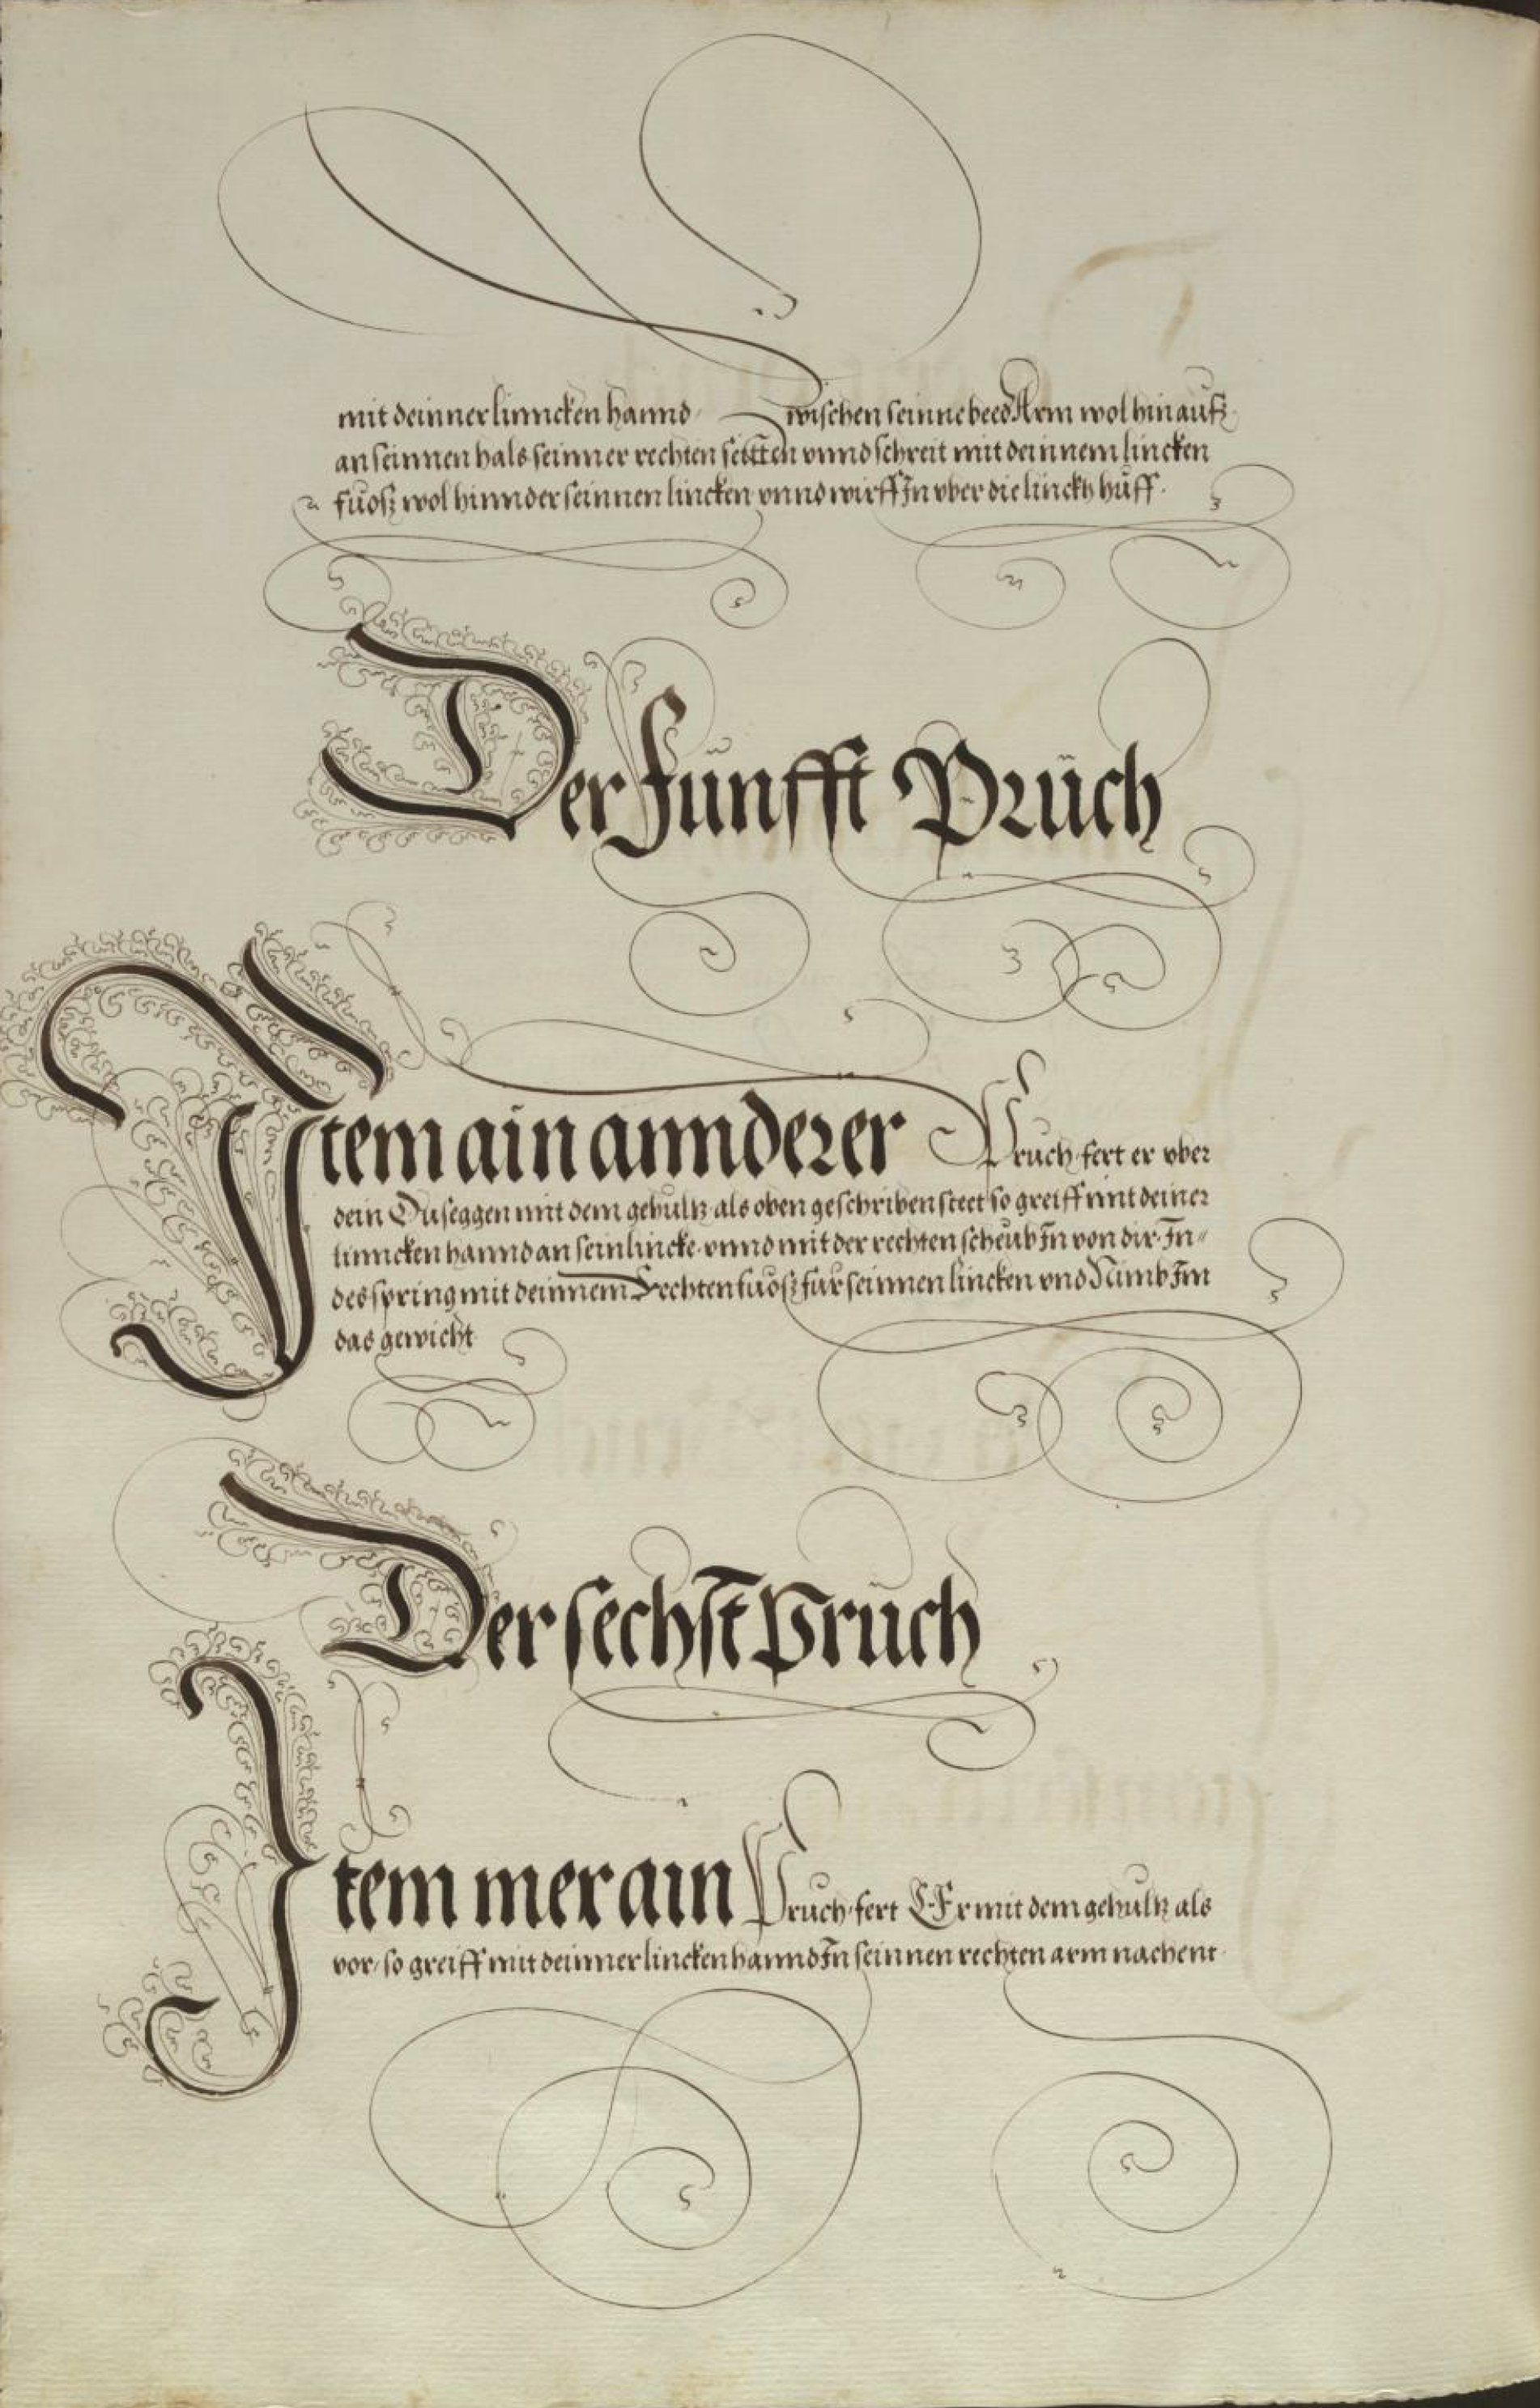 mit deinner linncken hannd zwischen seinne beed Arm wol hinauß
an seinnen hals seinner rechten seitten vnnd schreit mit deinnem lincken
fuosz wol hinnder seinnen lincken vnnd wirff In vber die linckh huff.
Der Funfft Pruch
Item ain annderer Pruch fert er vber
dein Duseggen mit dem gehultz als oben geschriben steet so greiff mit deiner
linncken hannd an sein lincke vnnd mit der rechten scheub In von dir In-
des spring mit deinnem Rechten fuosz fur seinnen lincken vnd Nimb Im
das gewicht
Der sechst Pruch
Item mer ain Pruch fert Er mit dem gehultz als
vor so greiff mit deinner lincken hannd In seinnen rechten arm nachent